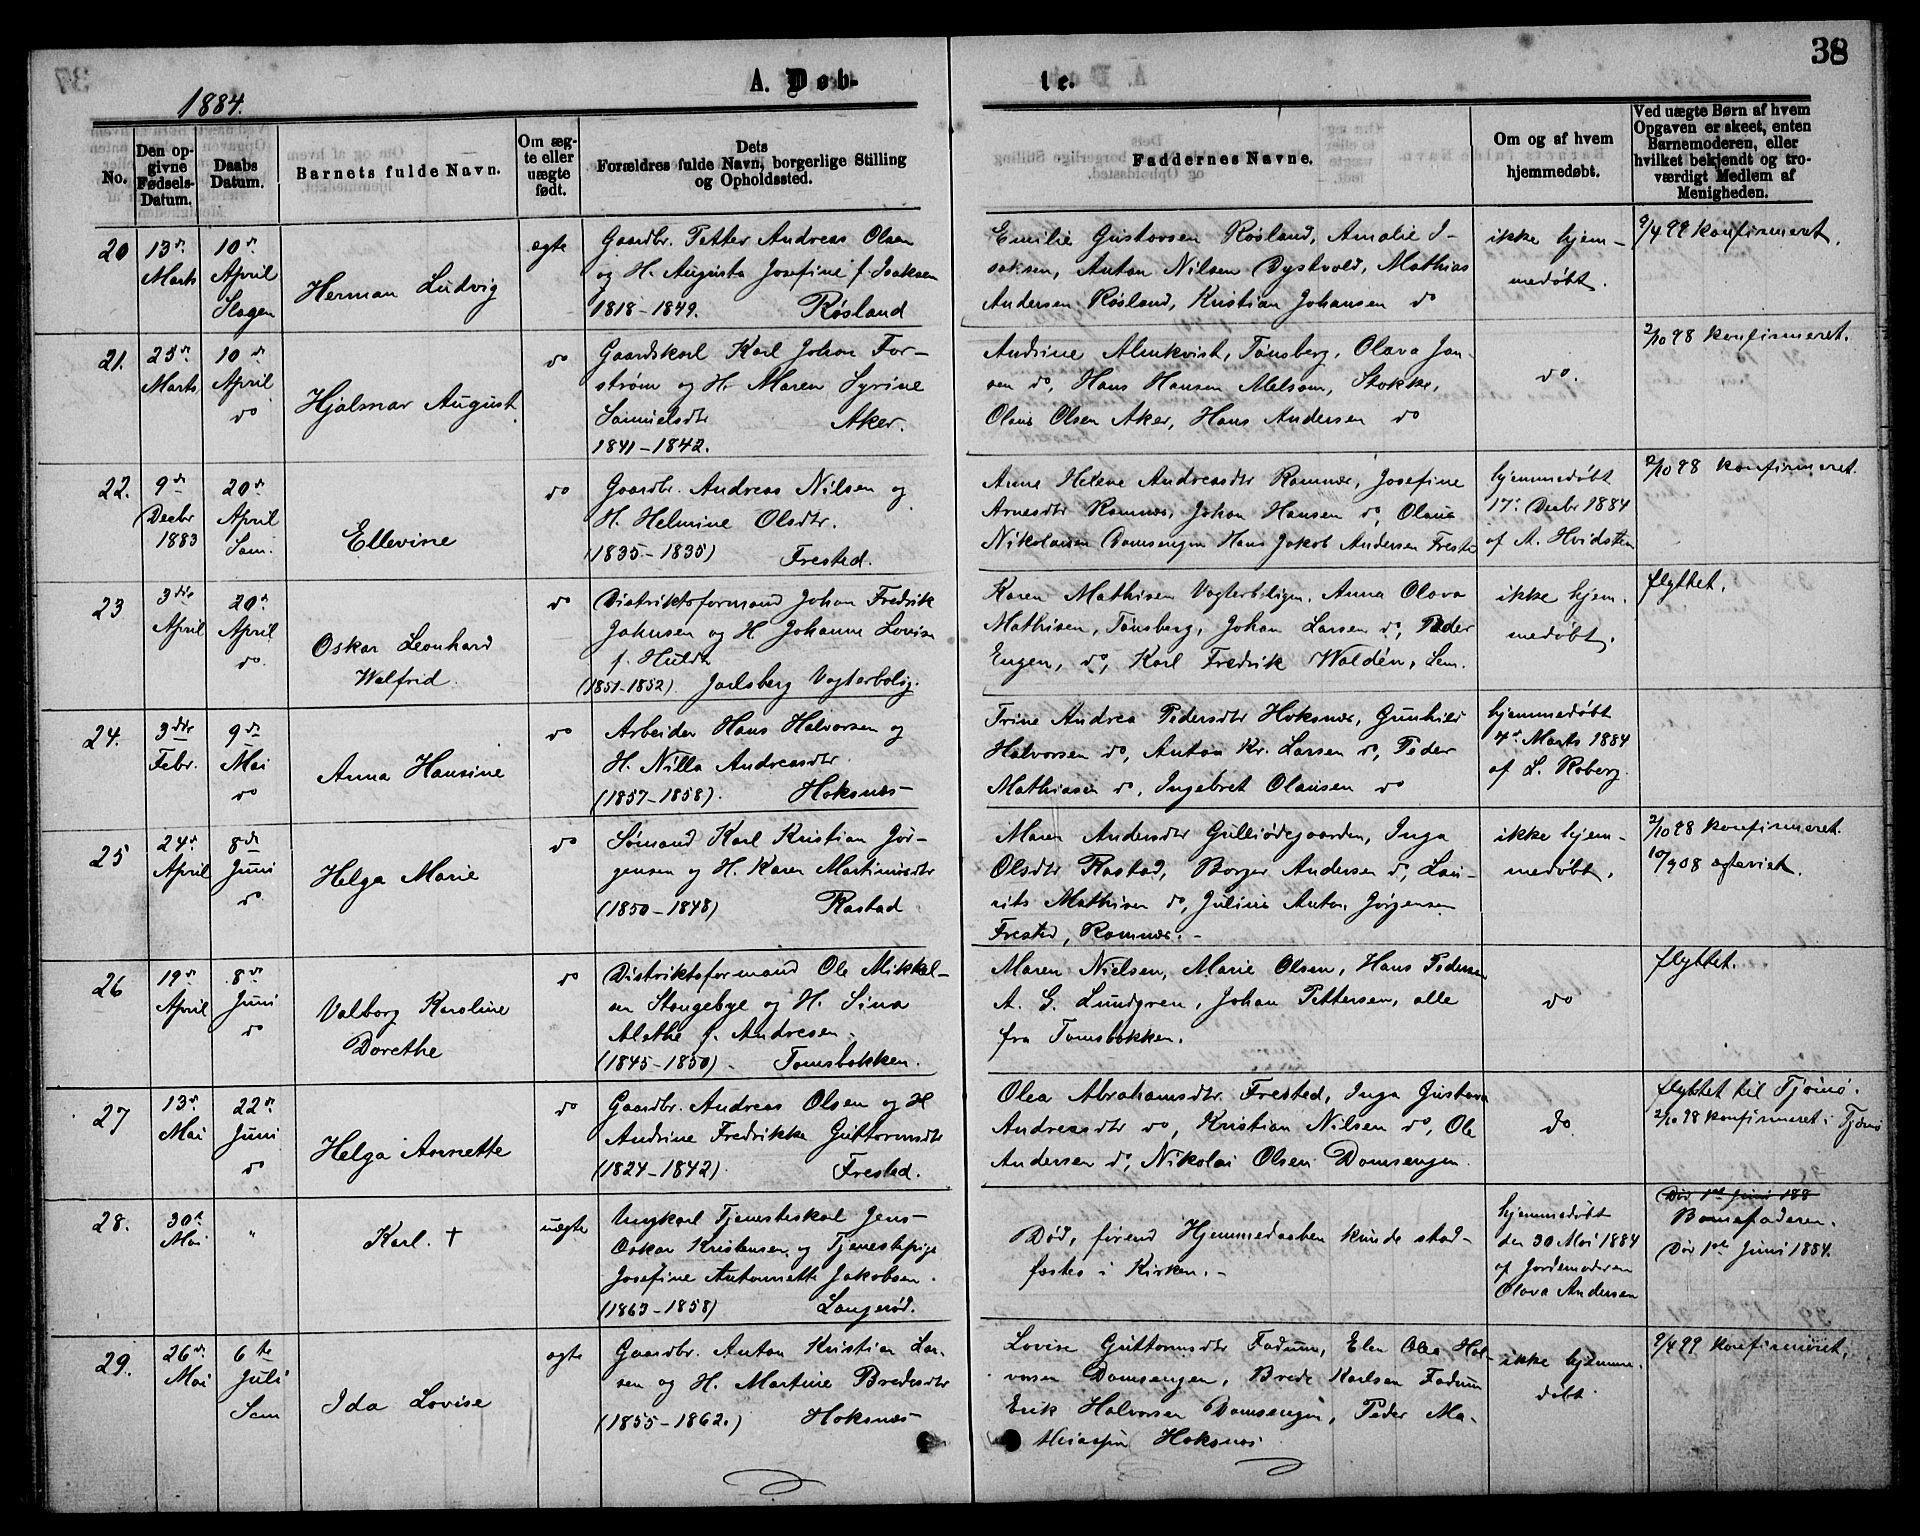 38
1884.
A. Døb-
te.
No.
Den op-
givne
Fødsels-
Datum.
Daabs
Datum.
Barnets fulde Navn.
Om æg-
te eller
uægte
født.
Dets
Forældres fulde Navn, borgerlige Stilling
og Opholdssted.
Faddernes Navne.
Om og af hvem
hjemmedøbt.
Ved uægte Børn af hvem
Opgaven er skeet, enten
Barnemoderen, eller
hvilket bekjendt og tro-
værdigt Medlem af
Menigheden.
20
13de
Marts
10de
April
Slagen
Herman Ludvig
ægte
Gaardbr. Petter Andreas Olsen
og H. Augusta Josefine f. Isaksen
1818-1849. Røsland
Emilie Gustavsen Røsland, Amalie I-
saksen, Anton Nilsen Dystvold, Mathias
Andersen Røsland, Kristian Johansen do
ikke hjem-
medøbt.
9/4 99 konfirmeret.
21.
25de
Marts
10de
April
do
Hjalmar August
do
Gaardskarl Karl Johan For-
strøm og H. Maren Syrine
Samuelsdtr Aker.
1841-1842.
Andrine Almkvist, Tønsberg, Olava Jan-
sen do, Hans Hansen Melsom, Stokke,
Olaus Olsen Aker, Hans Andersen do
do.
2/10 98 konfirmeret.
22.
9de
Decbr
1883
20de
April
Sem.
Ellevine
do
Gaardbr. Andreas Nilsen og
H. Helmine Olsdtr.
(1835-1835) Frested.
Anne Helene Andreasdtr Ramnæs, Josefine
Arnesdtr Ramnæs, Johan Hansen do, Olaus
Nikolaisen Domsengen Hans Jakob Andersen Frested
hjemmedøbt
17de Decbr 1884
af A. Hvidsten
2/10 98 konfirmeret.
23
3die
April
20de
April
do
Oskar Leonhard
Walfrid.
do
Distriktsformand Johan Fredrik
Johnsen og H. Johanne Lovise
f. Huldt
(1851-1852) Jarlsberg Vogterbolig.
Karen Mathisen Vogterboligen. Anna Olava
Mathisen, Tønsberg, Johan Larsen do, Peder
Engen, do, Karl Fredrik Waldén, Sem.
ikke hjem-
medøbt.
flyttet.
24.
3die
Febr.
9de
Mai
do
Anna Hansine
do
Arbeider Hans Halvorsen og
H. Nilla Andreasdtr.
(1857-1858). Hoksnæs
Trine Andrea Pedersdtr Hoksnæs, Gunhild
Halvorsen do, Anton Kr. Larsen do, Peder
Mathiasen do, Ingebret Olausen do
hjemmedøbt
4de Marts 1884
af L. Roberg.
25
24de
April
8de
Juni
do
Helga Marie
do
Sømand Karl Kristian Jør-
gensen og H. Karen Martinusdtr
(1850-1848) Rastad
Maren Andersdtr Gulliødegaarden, Inga
Olsdtr Rastad, Borger Andersen do, Lau-
rits Mathisen do, Julius Anton Jørgensen
Frested, Ramnæs.
ikke hjem-
medøbt.
2/10 98 konfirmeret.
10/9 08 ægteviet.
26
19de
April
8de
Juni
do
Valborg Karoline
Dorethe
do
Distriktsformand Ole Mikkel-
sen Stangebye og H. Sina
Alethe f. Andresen.
(1845-1850). Tomsbakken.
Maren Nielsen, Marie Olsen, Hans Pedersen
A. G. Lundgren, Johan Pettersen, alle
fra Tomsbakken.
do
flyttet.
27
13de
Mai
22de
Juni
do
Helga Annette
do
Gaardbr. Andreas Olsen og H
Andrine Fredrikke Guttormsdtr
(1824-1842). Frested.
Olea Abrahamsdtr Frested, Inga Gustava
Andreasdtr do, Kristian Nilsen do, Ole
Andersen do, Nikolai Olsen Domsengen.
do
flyttet til Tjømø.
2/10 98 konfirmeret i Tjømø
28.
30te
Mai
"
Karl. †
uægte
Ungkarl Tjenestekarl Jens
Oskar Kristensen og Tjenestepige
Josefine Antonnette Jakobsen.
(1863-1858) Langerød.
Død, førend Hjemmedaaben kunde stad-
fæstes i Kirken.
hjemmedøbt
den 30 Mai 1884
af Jordemoderen
Olava Andersen
Død 1ste Juni 188
Barnefaderen.
Død 1ste Juni 1884.
29.
26de
Mai
6te
Juli
Sem
Ida Lovise
ægte
Gaardbr. Anton Kristian Lar-
sen og H. Martine Bredesdtr
(1855-1862.) Hoksnæs
Lovise Guttormsdtr Fadum, Elen Olea Hal-
vorsen Domsengen, Brede Karlsen Fadum
Erik Halvorsen Domsengen, Peder Ma-
thiassen Hoksnæs
ikke hjemme-
døbt.
9/4 99 konfirmeret.